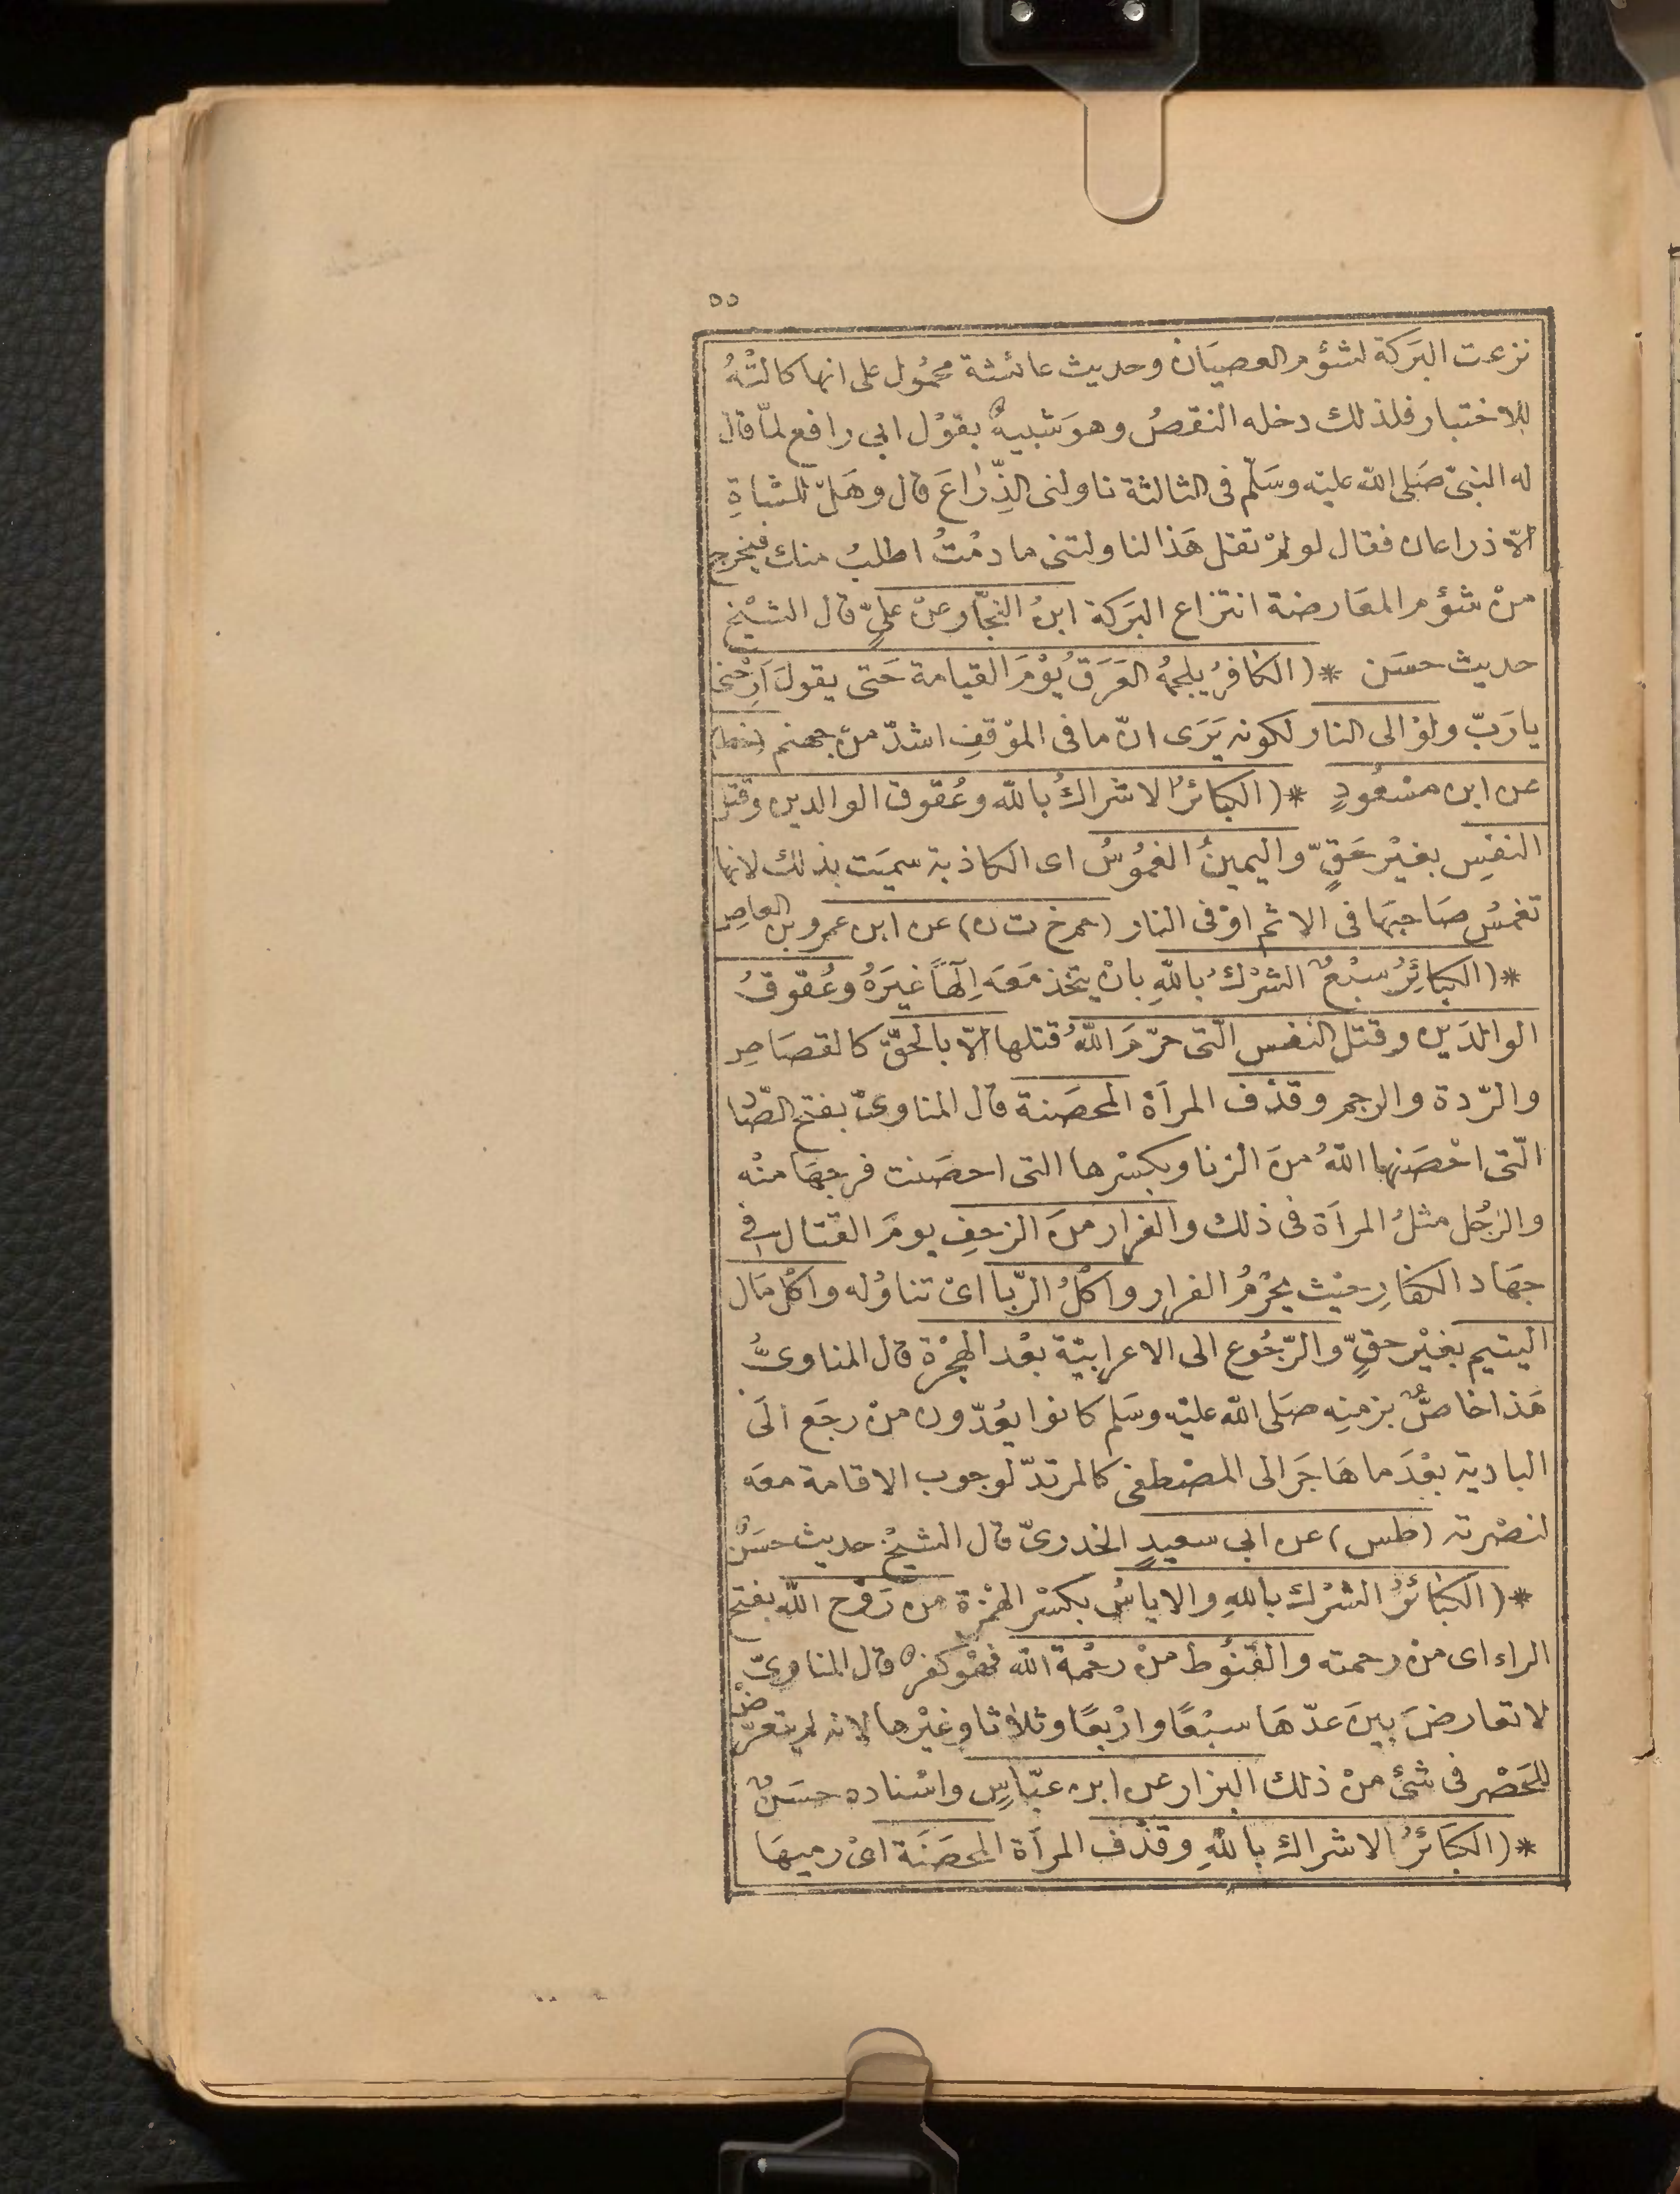 ٥٥
نزعت البَركة لشؤم العصيَان وحديث عائشة محمُول على انها كالتْهُ
للاختبار فلذلك دخله النقصُ وهوَ شبيهٌ بقوْل ابي رافع لمّا قال
له النبيّ صَلى الله عليْه وسَلّم فى الثالثة ناولنى الذِّراعَ قال وهَلْ للشاةِ
الاّ ذراعان فقال لو لمْ تقل هَذا لناولتنى ما دمْتُ اطلبُ منك فيخرج
منْ شؤم المعَارضة انتزاع البَركة ابنُ النجّار عنْ عليّ قال الشيْخ
حديث حسَن * (الكافرُ يلجمُهُ العَرَقُ يوْمَ القيامة حَتى يقولَ اَرِحْنى
يا رَبّ ولوْ الى النار لكونه يَرَى انّ ما فى الموْقفِ اشدّ منْ جهنم (خط)
عن ابن مسْعُودٍ * (الكبائرُ الاشراكُ بالله وعُقوق الوالدين وقتل
النفسِ بغيْر حَقٍّ واليمينُ الغمُوسُ اى الكاذبة سميَت بذلك لانها
تغمسُ صَاحبَها فى الاثم اوْ فى النار (حم خ ت ن) عن ابن عمرو بن العاص
* (الكبَائِرُ سبْعٌ الشرْكُ باللهِ بانْ يتخذ مَعَه اِلَهًا غيَرَهُ وعُقوقُ
الوالدَين وقتل النفس الّتى حرّمَ اللهُ قتلها الاّ بالحَقّ كالقصَاص
والرّدة والرجم وقذْف المرأة المحصَنة قال المناوىّ بفتح الصّاد
الّتى احْصَنها اللهُ منَ الزنا وبكسْرها التى احصَنت فرجهَا منْه
والرجُل مثلُ المرأة فى ذلك والفرار منَ الزحفِ يومَ القتال فى
جهَاد الكفارِ حيْث يحْرُمُ الفرار واكْلُ الرّبا اىْ تناوُله واكْل مَال
اليتيم بغيْر حقٍّ والرّجُوع الى الاعرابيّة بعْد الهجْرة قال المناوىُّ
هَذا خاصٌّ بزمنِه صَلى الله عليْه وسَلم كانوا يعُدّون منْ رجَع الَى
البادية بعْدَ ما هَاجَر الى المصْطفى كالمرتدّ لوجوب الاقامة معَه
لنصْرته (طس) عن ابي سعيدٍ الخدرىّ قال الشيْخ حديث حسَنٌ
* (الكبَائرُ الشرْك باللهِ والاياسُ بكسْر الهمْزة من رَوْح الله بفتح
الراء اى منْ رحمته والقنُوط منْ رحْمة الله فهوَ كفرٌ قال المناوىّ
لا تعارضَ بينَ عدّهَا سبْعًا وارْبعًا وثلاثا وغيْرها لانه لم يتعرّض
للحَصْر فى شئ منْ ذلك البزار عن ابن عبّاسٍ واسْناده حسَنٌ
* (الكبَائرُ الاشراك باللهِ وقذْف المرأة المحصَنَة اىْ رميهَا